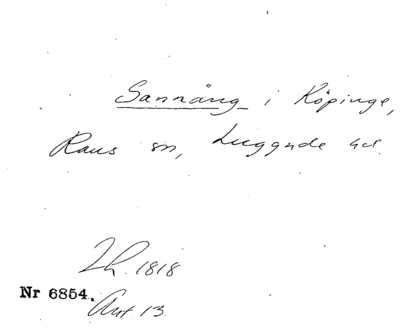 Sannäng i Köpinge,
Raus sn, Luggude hd.
Lh. 1818
Nr 6854.
Avt 13